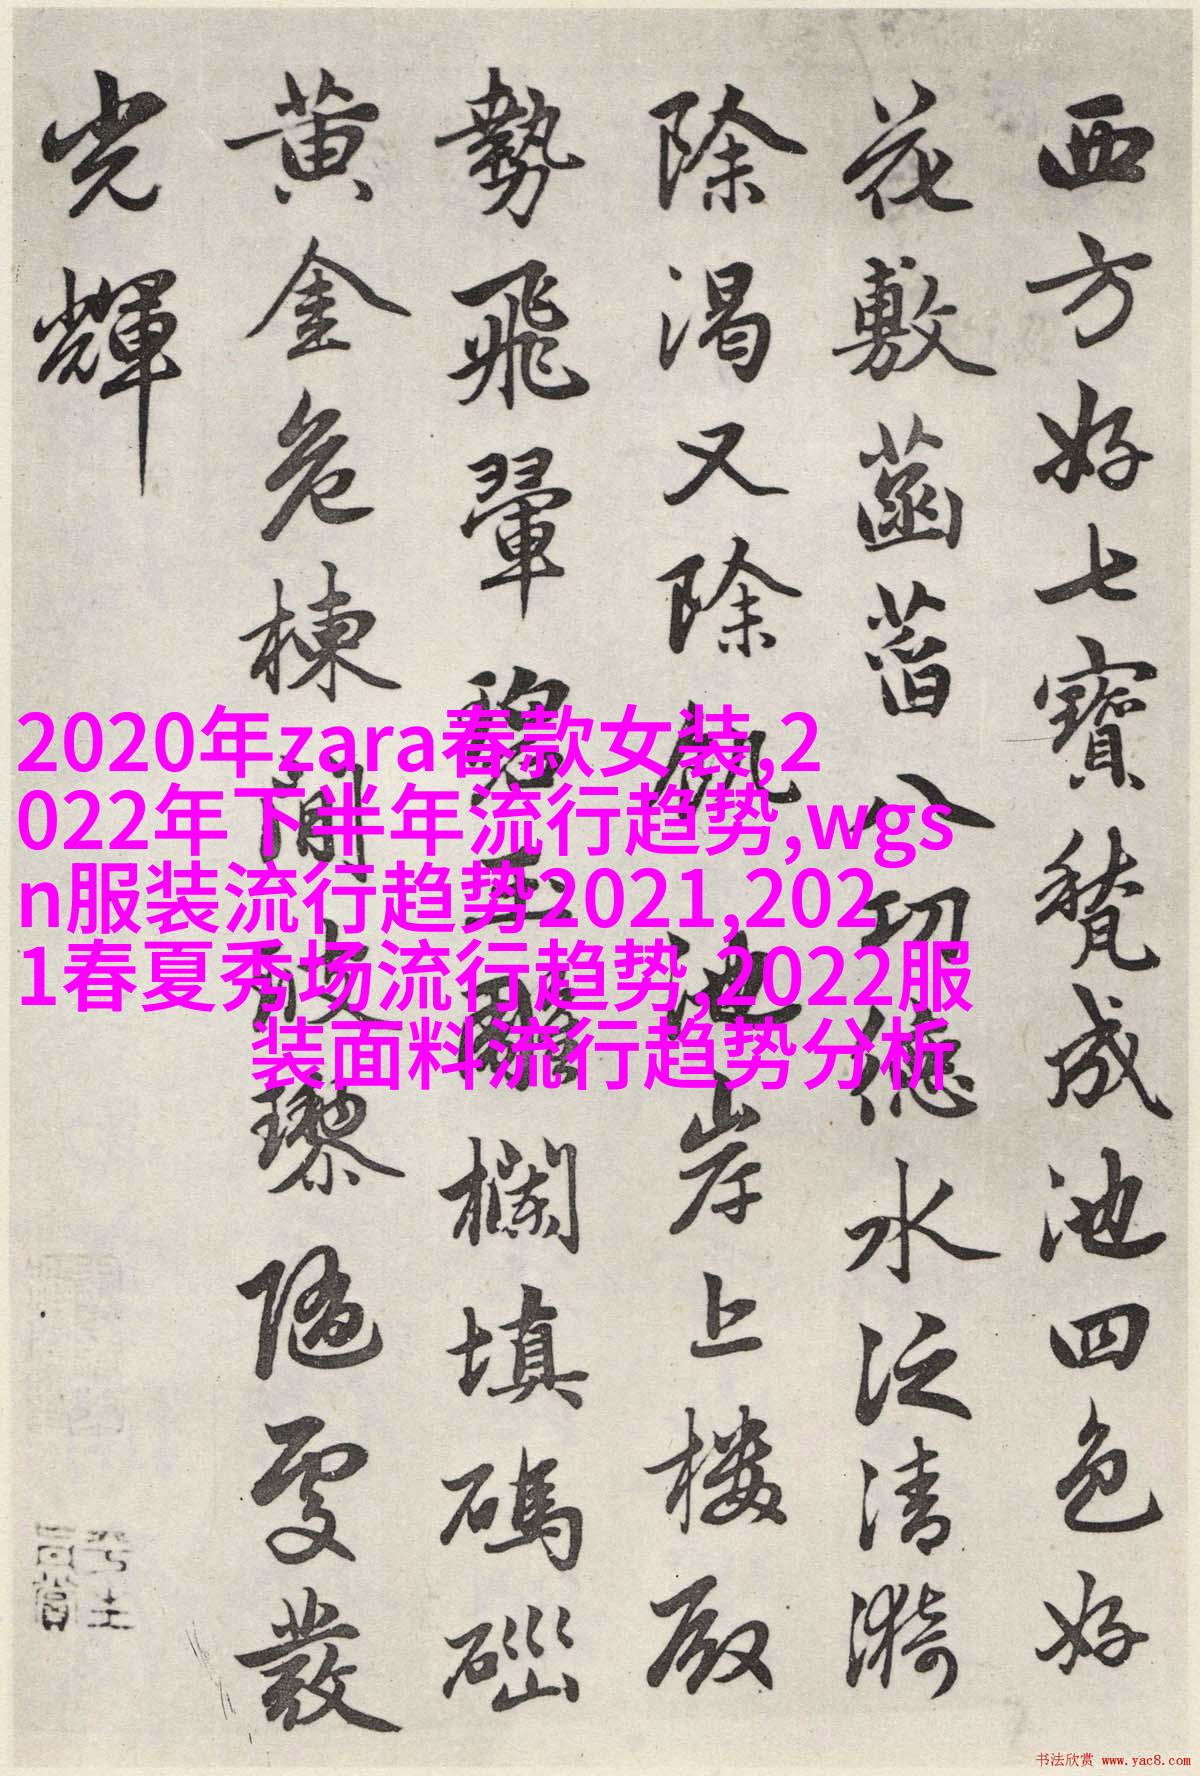 西方好七寶甃成池四色好
花敷菡萏八功德水泛清漪
除渴又除飢池岸上樓殿
勢飛翬碧玉雕欄填碼碯
黄金危棟間玻瓈隨處發
光輝
2020年zara春款女装,2
022年下半年流行趋势,wgs
n服装流行趋势2021,202
1春夏秀场流行趋势,2022服
装面料流行趋势分析
书法欣赏 www.yac8.com